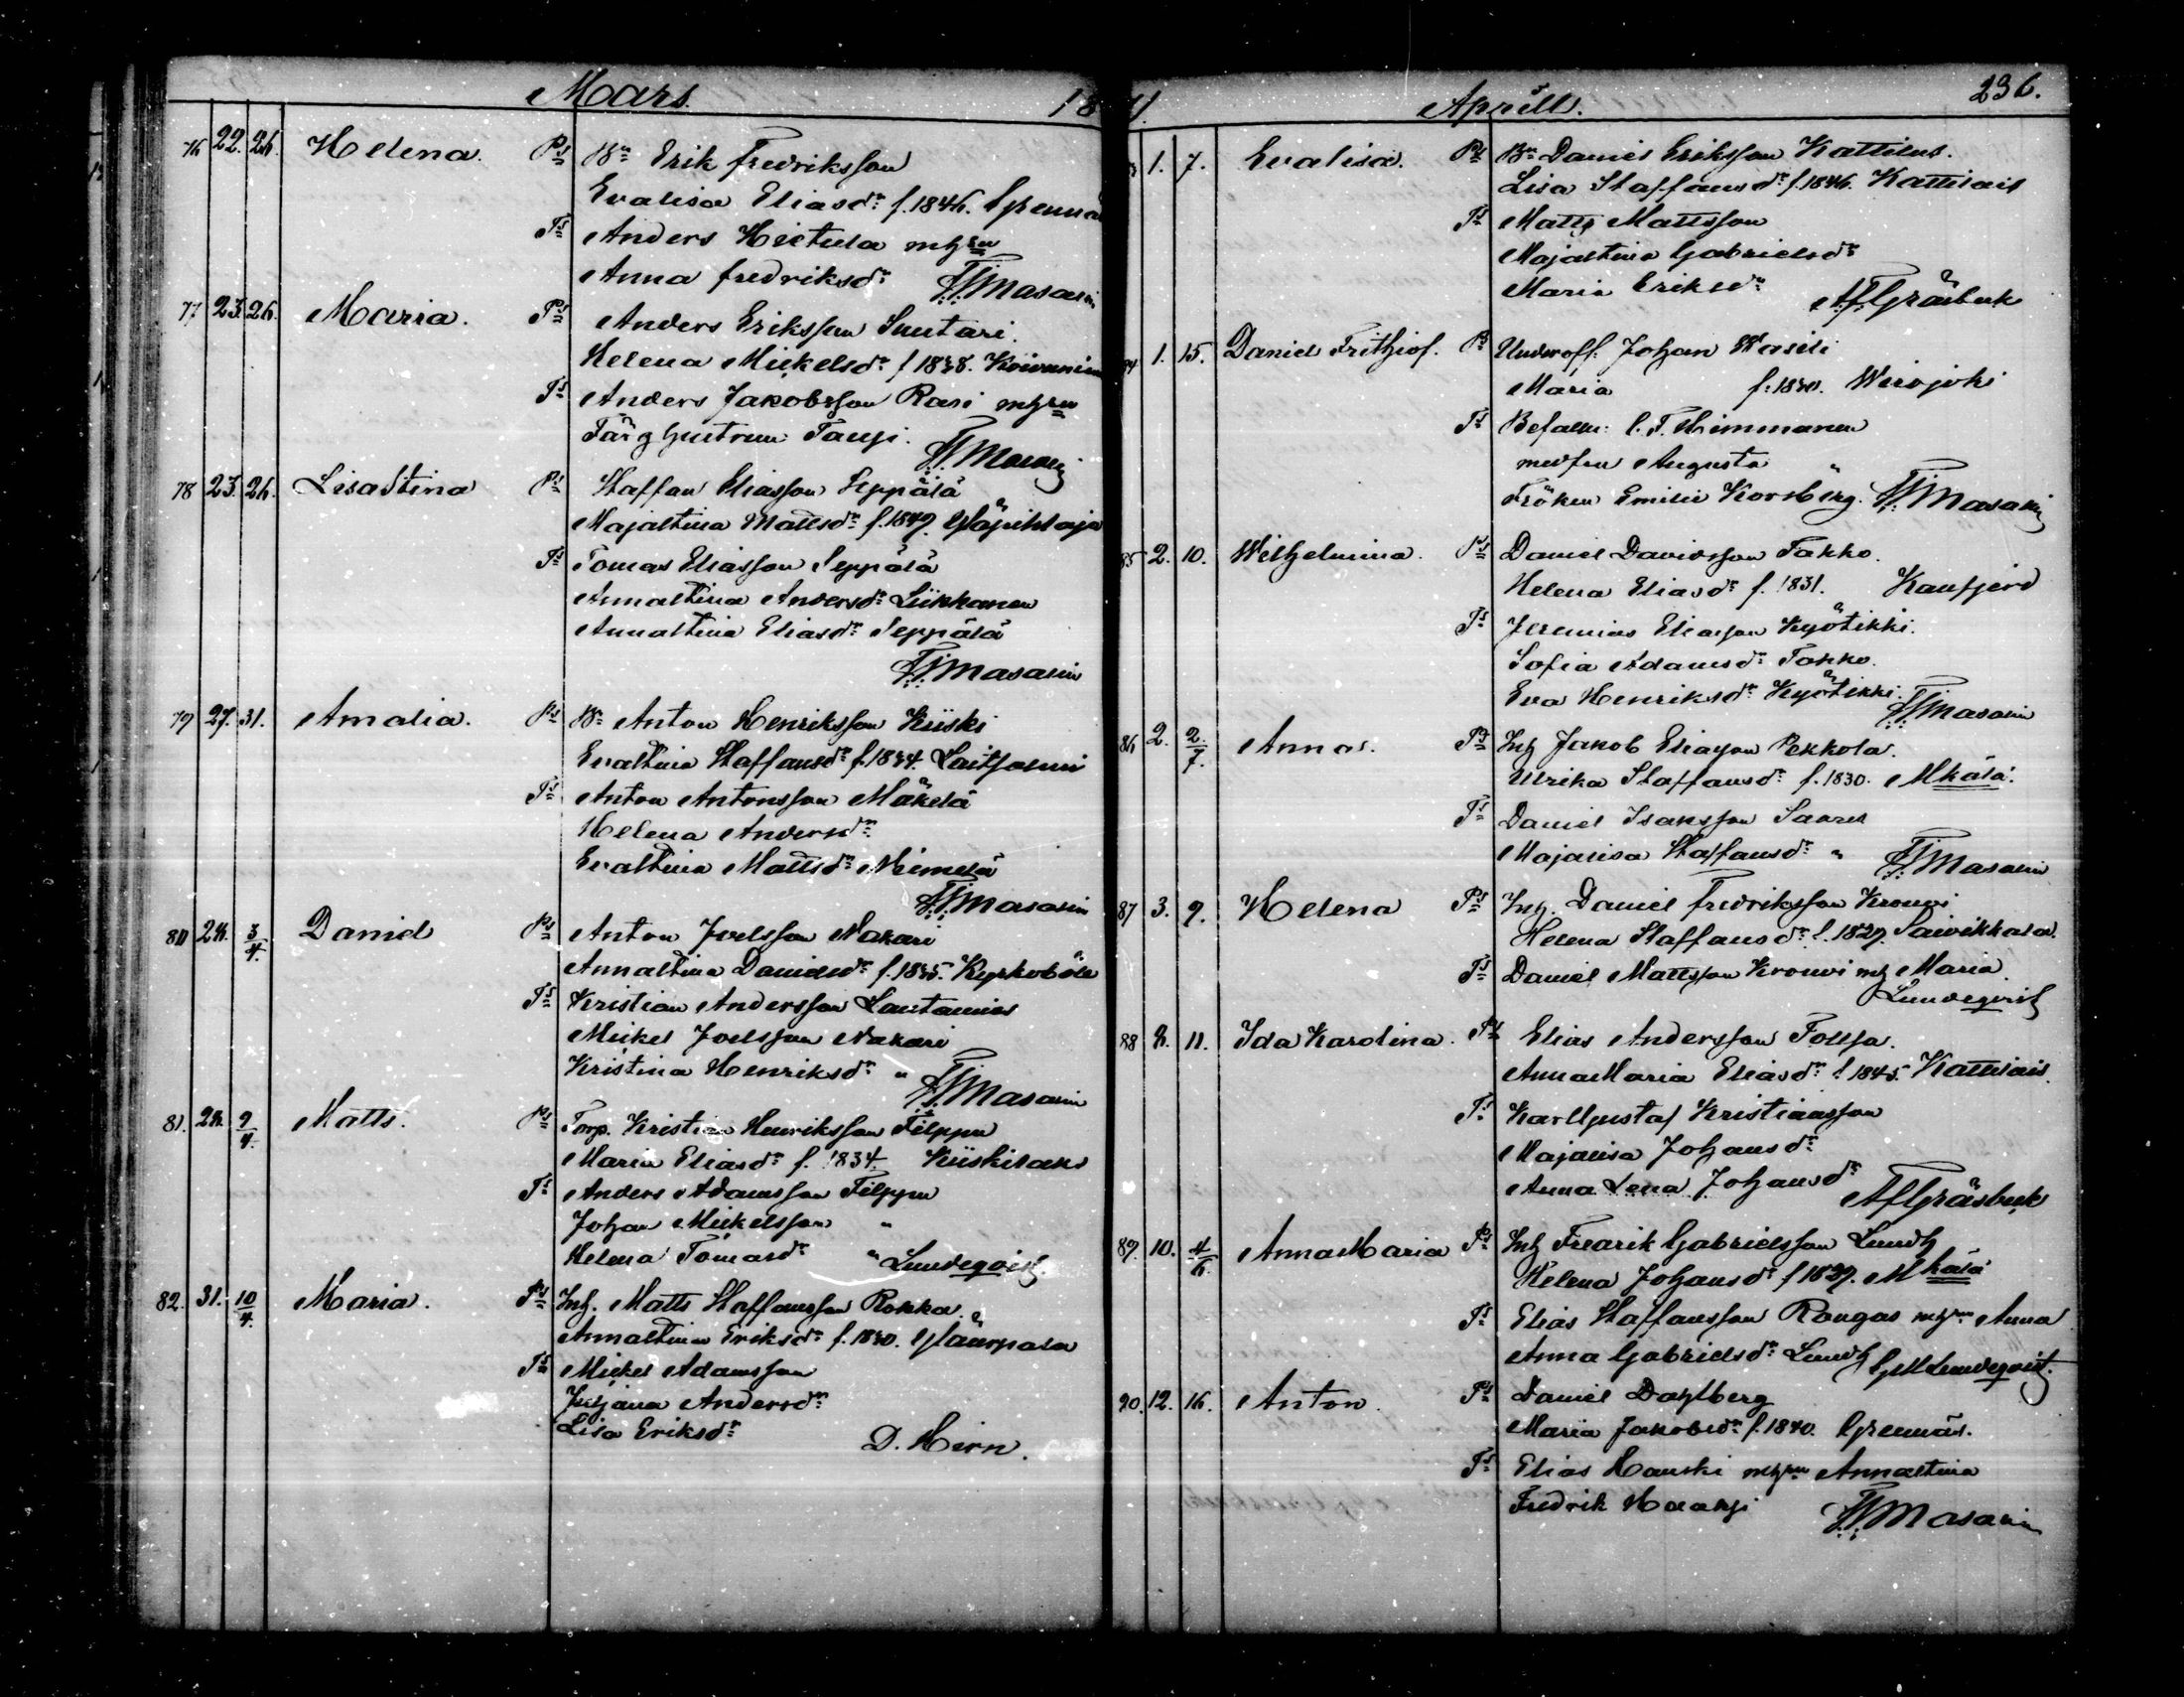 Mars. 18
76 22. 26. Helena. Ps Bn Erik Fredriksson
Evalisa Eliasdr f. 1846. Grennäs
Ts Anders Hietula mhru
Anna Fredriksdr Masalin
77 23. 26. Maria. Ps Anders Eriksson Suutari.
Helena Mickelsdr f 1838. Koivuniemi
Ts Anders Jakobsson Rasi mhru
Masalin
78 23. 26. Lisa Stina Ps Staffan Eliasson Seppälä
Majastina Mattsdr f. 1849.
Ts Tomas Eliasson Seppälä
Annastina Andersdr Liikkanen
Annastina Eliasdr Seppälä
Masalin
79 27. 31. Amalia. Ps Bn Anton Henriksson Kiiski
Evastina Staffansdr f. 1834. Laitsalmi
Ts Anton Antonsson Mäkelä
Helena Andersdr
Evastina Mattsdr Niemelä
Masalin
80 28. 3/4. Daniel Ps Anton Joelsson Nakari
Annastina Danielsdr f. 1835. Kyrkoböle
Ts Kristian Andersson Lautamies
Mickel Joelsson Nakari
Kristina Henriksdr "
Masalin
81. 28. 9/4. Matts. Ps Torp. Kristian Henriksson Filppu
Maria Eliasdr f. 1834. Kiiskilaks
Ts Anders Adamsson Filppu
Johan Mickelsson "
Helena Tomasdr " Lundeqvist.
82. 31. 10/4. Maria. Ps Inh. Matts Staffansson Rokka.
Annastina Eriksdr f. 1830.
Ts Mickel Adamsson
Juljana Andersdr
Lisa Eriksdr D. Hirn.
Aprill. 236.
1. 7. Evalisa. Ps Bn Daniel Eriksson Kattilus.
Lisa Staffansdr f. 1846. Kattilais
Ts Matts Mattsson
Majastina Gabrielsdr
Maria Eriksdr
A F Gräsbeck
84 1. 15. Daniel Frithiof. Ps Underoff. Johan Wasili
Maria f. 1830. Wirojoki
Ts Befallm:
med fru Augusta "
Fröken Emilie Korsberg. Masalin
85 2. 10. Wilhelmina. Ps Daniel Davidsson Takko.
Helena Eliasdr f. 1831. Kansjerd
Ts Jeremias Eliasson Kyötikki.
Sofia Adamsdr Takko.
Eva Henriksdr Kyötikki.
Masalin
86 2. 2/7. Anna. Ps Inh Jakob Eliasson Pekkola.
Ulrika Staffansdr f. 1830. M kälä.
Ts Daniel Isaksson Saares
Majalisa Staffansdr "
Masalin
87 3. 9. Helena Ps Inh. Daniel Fredriksson Krouvi
Helena Staffansdr f. 1829. Saivikkala.
Ts Daniel Mattsson Krouvi mh Maria.
Lundeqvist
88 8. 11. Ida Karolina. Ps Elias Andersson Tolsa.
Anna Maria Eliasdr f 1845. Kattilais.
Ts Karl Gustaf Kristiansson
Majalisa Johansdr
Anna Lena Johansdr
A F Gräsbeck
89. 10. 4/6. Anna Maria Ps Inh Fredrik Gabrielsson Lundh
Helena Johansdr f 1829. M kälä
Ts Elias Staffansson Rongas mhru Anna
Anna Gabrielsdr Lundh G M Lundeqvist.
90. 12. 16. Anton. Ps Daniel Dahlberg
Maria Jakobsdr f. 1840. Grennäs.
Ts Elias Hanski mhru Annastina
Fredrik
Masalin